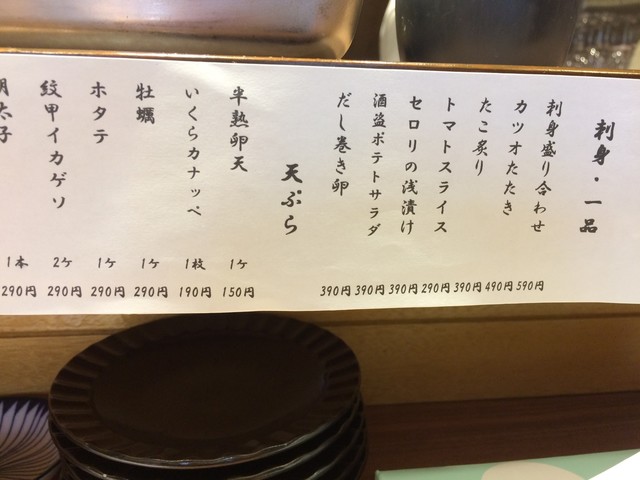 刺身・一品
刺身盛り合わせ 590円
カツオたたき 490円
たこ炙り 390円
トマトスライス 290円
セロリの浅漬け 390円
酒盗ポテトサラダ 390円
だし巻き卵 390円
天ぷら
半熟卵天 1ケ 150円
いくらカナッペ 1枚 190円
牡蠣 1ケ 290円
ホタテ 1ケ 290円
紋甲イカゲソ 2ケ 290円
明太子 1本 290円